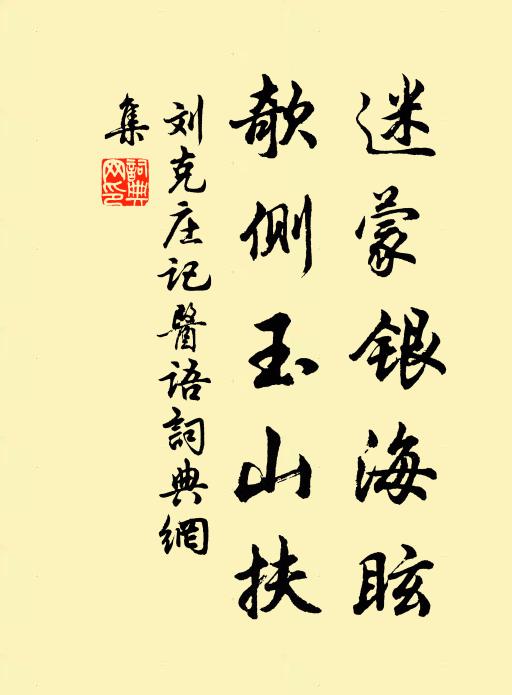 迷蒙银海眩
欹侧玉山扶
刘克庄记醫语詞典網
集
詞典網印